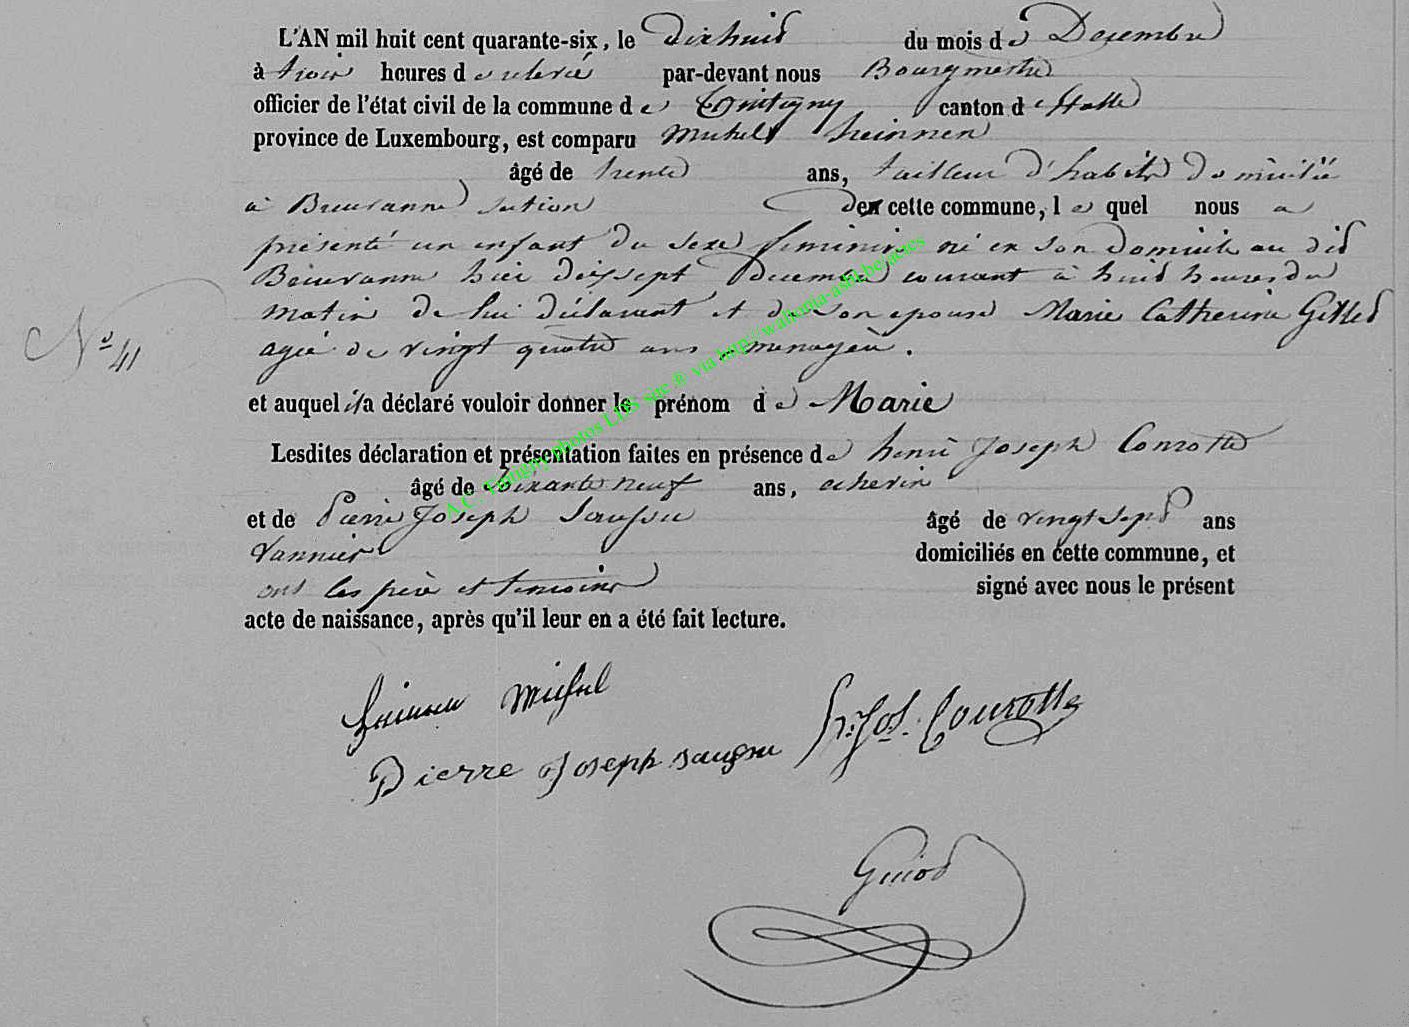 L'AN mil huit cent quarante-six, le dix huid du mois de Decembre
à trois heures de relevée par-devant nous Bourgmestre
officier de l'état civil de la commune de Tontigny canton d'Etalle
province de Luxembourg, est comparu Michel heinnen
âgé de trente ans, tailleur d'habits domicilié
à section de cette commune, lequel nous a
présenté un enfant du sexe feminin né en son domicile au dit
hier dixsept Decembre courant à huid heures du
matin de lui déclarant et de son epouse Marie Catherine Gilles
agée de vingt quatre ans menagère.
No 41
et auquel il a déclaré vouloir donner le prénom de Marie
Lesdites déclaration et présentation faites en présence de henri Joseph Conrotte
âgé de soixante neuf ans, echevin
et de Pierre Joseph âgé de vingt sept ans
Vannier domiciliés en cette commune, et
ont les père et temoins signé avec nous le présent
acte de naissance, après qu'il leur en a été fait lecture.
Michel
h. Jos. Conrotte
Pierre Joseph
A.C. Tintigny photos LDS site ® via http://wallonia-asbl.be/actes